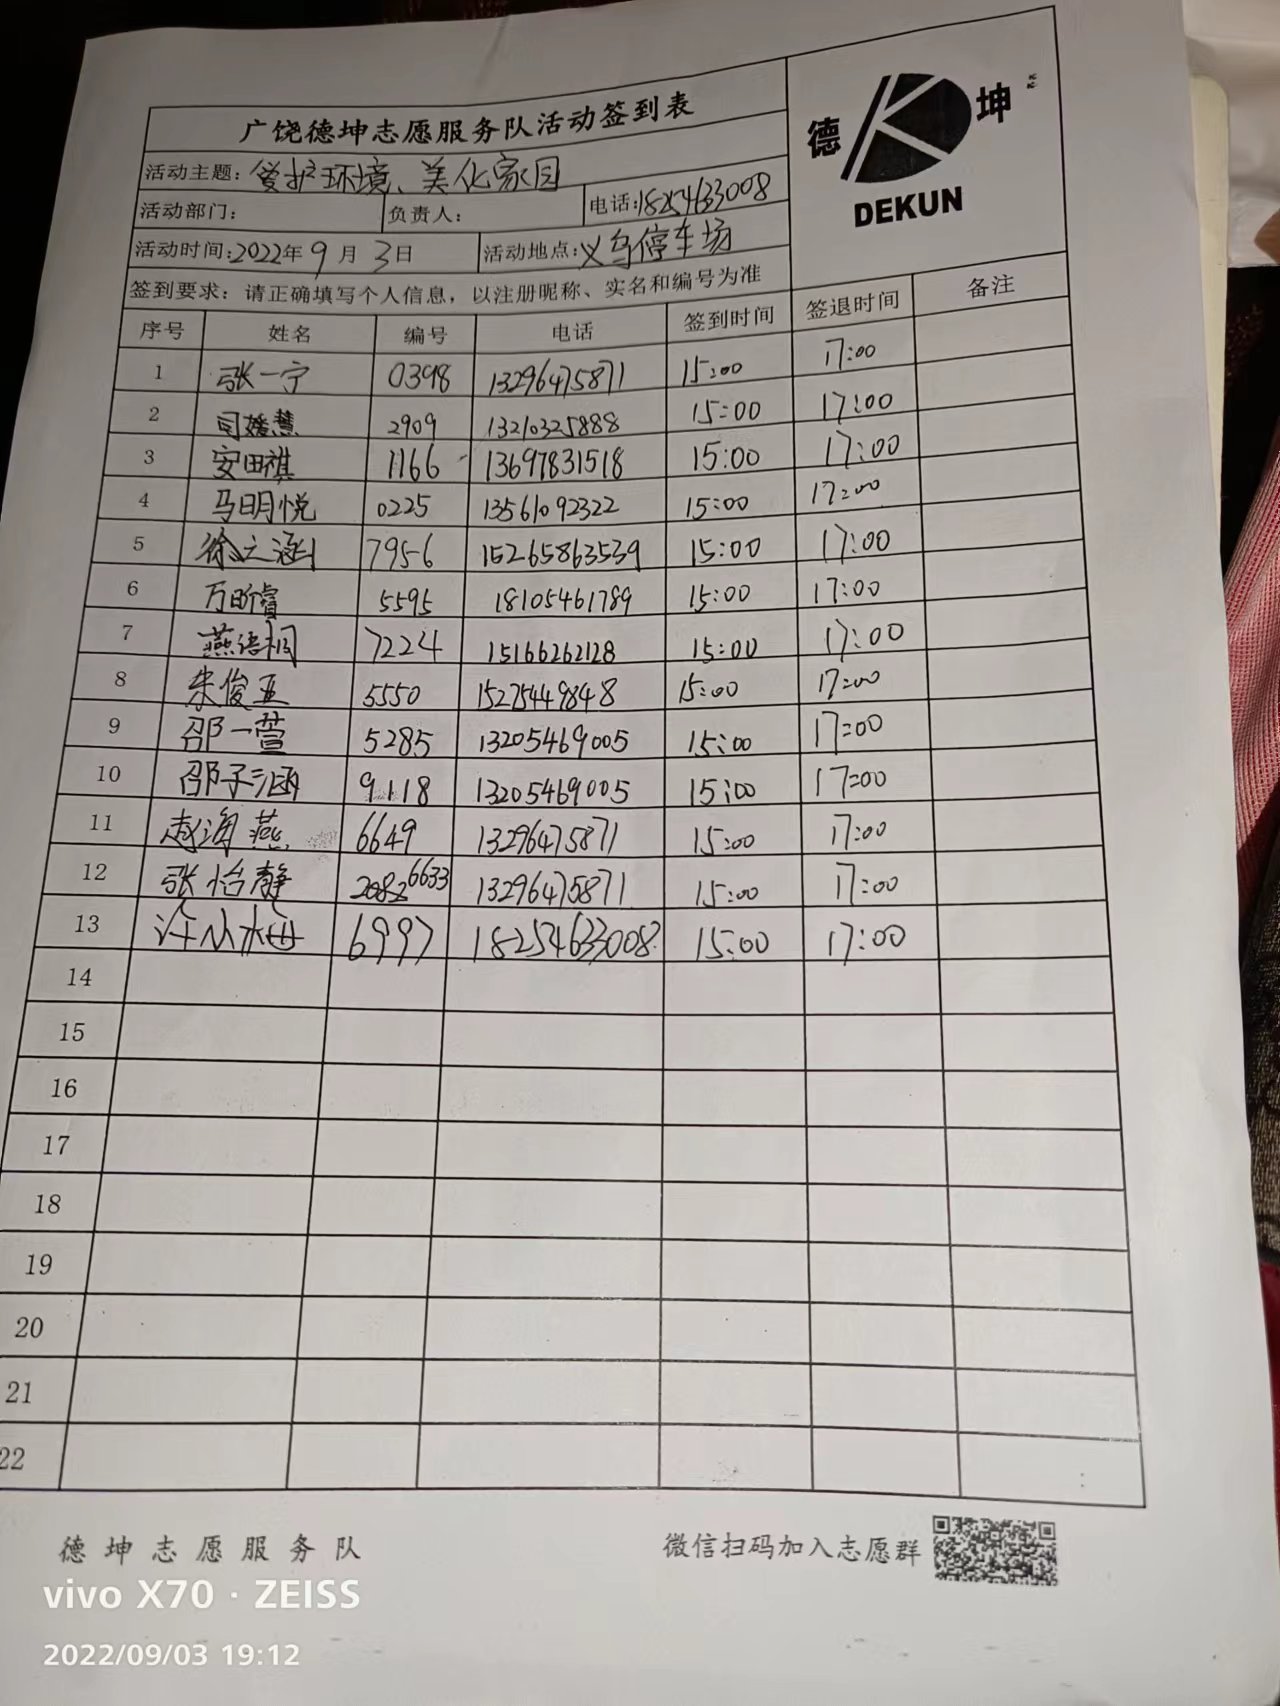 广饶德坤志愿服务队活动签到表
德 坤
DEKUN
活动主题：爱护环境、美化家园
活动部门： 负责人： 电话：18254633008
活动时间：2022年9月3日 活动地点：义乌停车场
签到要求：请正确填写个人信息，以注册昵称、实名和编号为准
序号 姓名 编号 电话 签到时间 签退时间 备注
1 张一宁 0398 13296475871 15:00 17:00
2 司媛慧 2909 13210325888 15:00 17:00
3 安田祺 1166 13697831518 15:00 17:00
4 马明悦 0225 13561092322 15:00 17:00
5 徐之涵 7956 15265863539 15:00 17:00
6 万昕睿 5595 18105461789 15:00 17:00
7 燕语桐 7224 15166262128 15:00 17:00
8 朱俊亚 5550 15275449848 15:00 17:00
9 邵一萱 5285 13205469005 15:00 17:00
10 邵子涵 9118 13205469005 15:00 17:00
11 赵海燕 6649 13296475871 15:00 17:00
12 张怡静 6633 13296475871 15:00 17:00
13 6997 18254633008 15:00 17:00
14
15
16
17
18
19
20
21
22
德坤志愿服务队 微信扫码加入志愿群
vivo X70 · ZEISS
2022/09/03 19:12